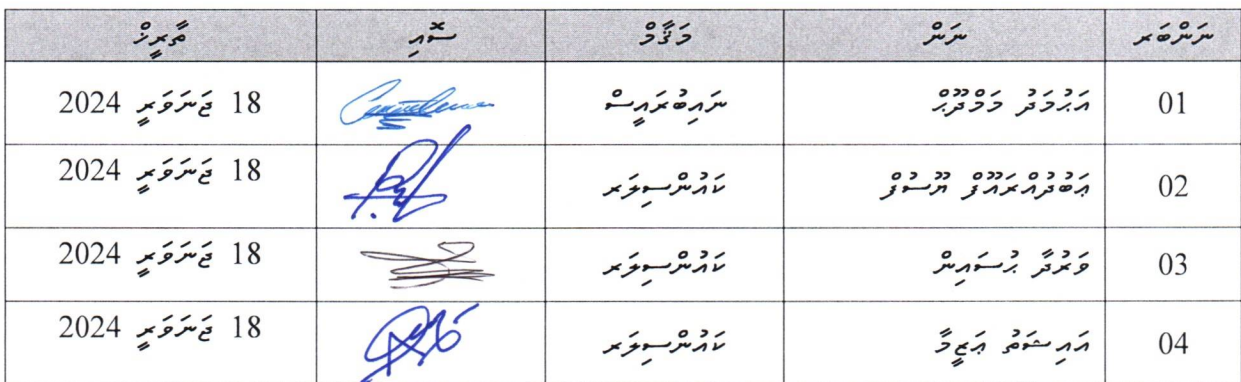 ނަންބަރ ނަން މަޤާމް ސޮއި ތާރީޚް
01 އަޙުމަދު މަމްދޫޙް ނައިބުރައީސް 18 ޖަނަވަރީ 2024
02 ޢަބުދުއްރައޫފް ޔޫސުފް ކައުންސިލަރ 18 ޖަނަވަރީ 2024
03 ވަރުދާ ޙުސައިން ކައުންސިލަރ 18 ޖަނަވަރީ 2024
04 އައިޝަތު ޢަޒީމާ ކައުންސިލަރ 18 ޖަނަވަރީ 2024